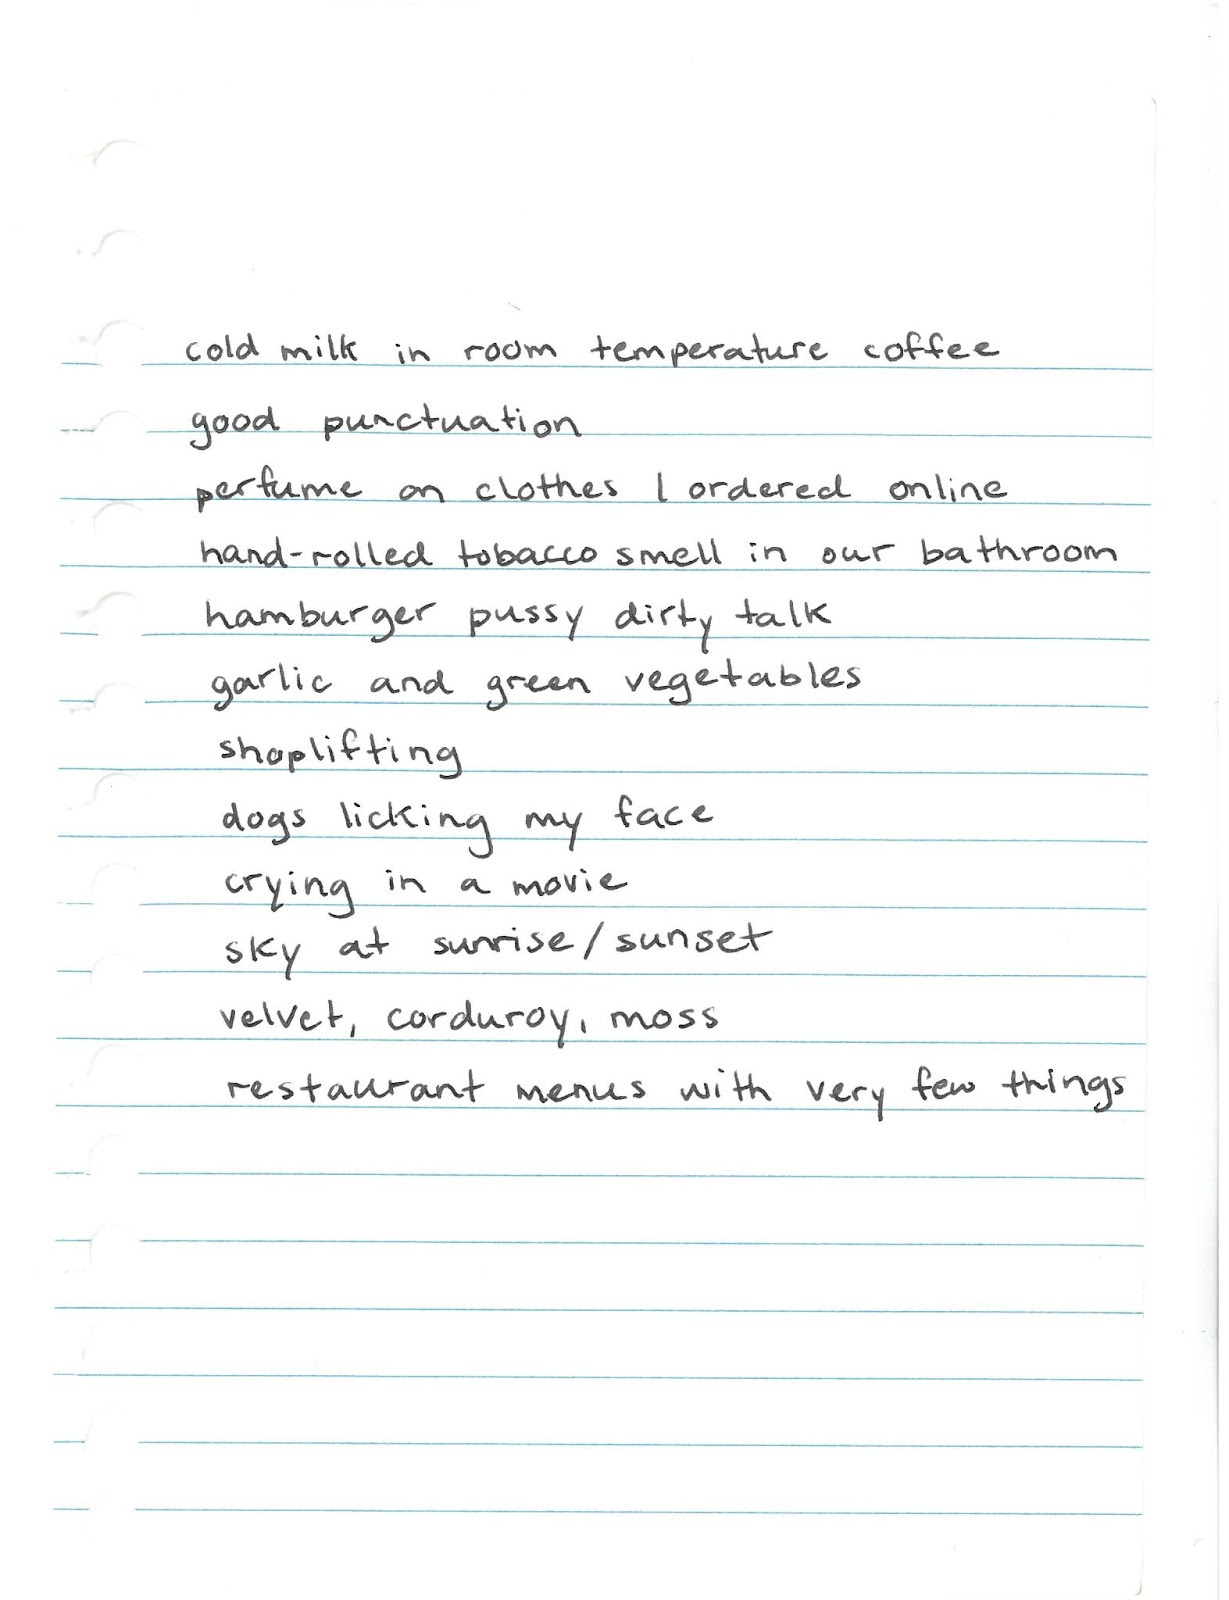 cold milk in room temperature coffee
good punctuation
perfume on clothes I ordered online
hand-rolled tobacco smell in our bathroom
hamburger pussy dirty talk
garlic and green vegetables
shoplifting
dogs licking my face
crying in a movie
sky at sunrise/sunset
velvet, corduroy, moss
restaurant menus with very few things